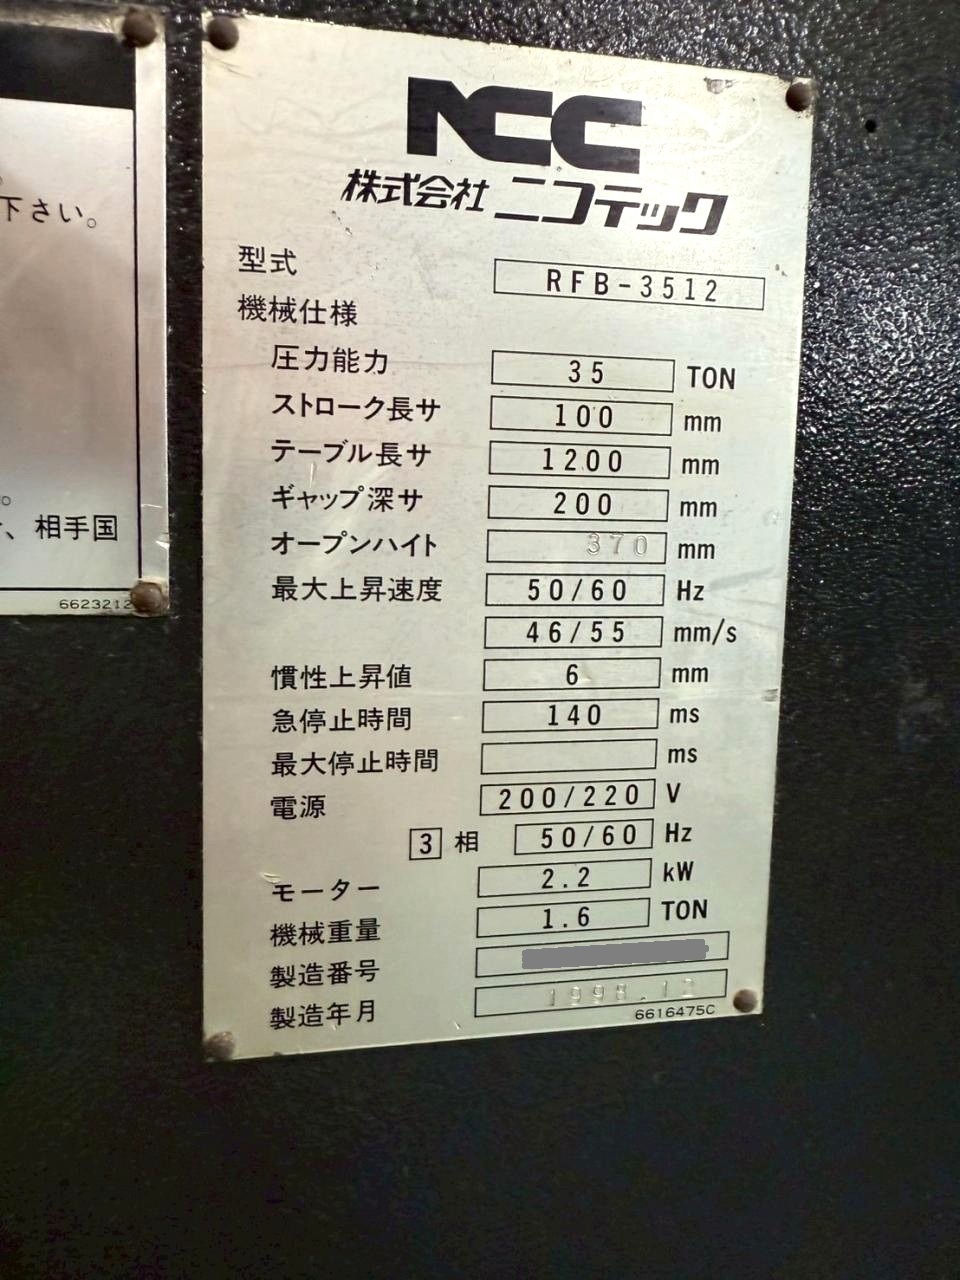 下さい。
。
、相手国
6623212
NCC
株式会社 ニコテック
型式 RFB-3512
機械仕様
圧力能力 35 TON
ストローク長サ 100 mm
テーブル長サ 1200 mm
ギャップ深サ 200 mm
オープンハイト 370 mm
最大上昇速度 50/60 Hz
46/55 mm/s
慣性上昇値 6 mm
急停止時間 140 ms
最大停止時間 ms
電源 200/220 V
3 相 50/60 Hz
モーター 2.2 kW
機械重量 1.6 TON
製造番号
製造年月 1998.12
6616475C